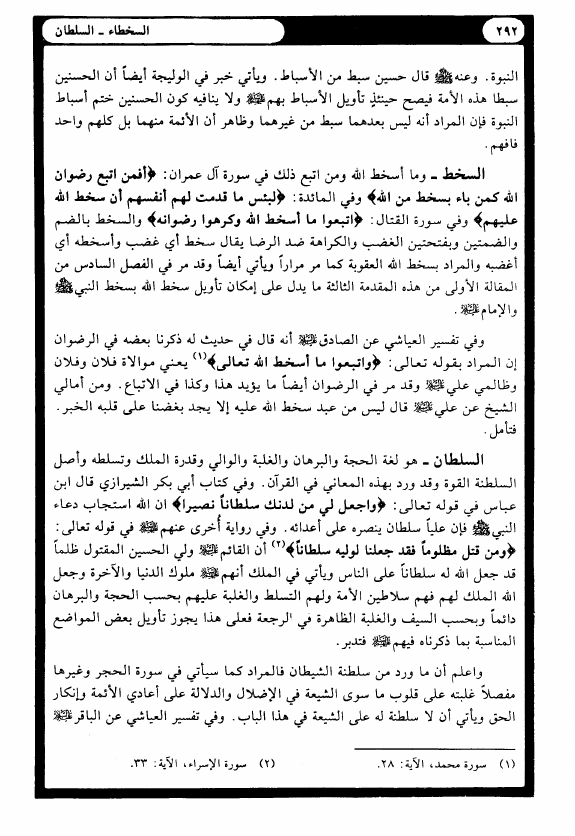 ٢٩٢
السخطاء ـ السلطان
النبوة. وعنه ﷺ قال حسين سبط من الأسباط. ويأتي خبر في الوليجة أيضاً أن الحسنين
سبطا هذه الأمة فيصح حينئذٍ تأويل الأسباط بهم عليهم السلام ولا ينافيه كون الحسنين ختم أسباط
النبوة فإن المراد أنه ليس بعدهما سبط من غيرهما وظاهر أن الأئمة منهما بل كلهم واحد
فافهم.
السخط ـ وما أسخط الله ومن اتبع ذلك في سورة آل عمران: ﴿أفمن اتبع رضوان
الله كمن باء بسخط من الله﴾ وفي المائدة: ﴿لبئس ما قدمت لهم أنفسهم أن سخط الله
عليهم﴾ وفي سورة القتال: ﴿اتبعوا ما أسخط الله وكرهوا رضوانه﴾ والسخط بالضم
والضمتين وبفتحتين الغضب والكراهة ضد الرضا يقال سخط أي غضب وأسخطه أي
أغضبه والمراد بسخط الله العقوبة كما مر مراراً ويأتي أيضاً وقد مر في الفصل السادس من
المقالة الأولى من هذه المقدمة الثالثة ما يدل على إمكان تأويل سخط الله بسخط النبي ﷺ
والإمام عليه السلام.
وفي تفسير العياشي عن الصادق عليه السلام أنه قال في حديث له ذكرنا بعضه في الرضوان
إن المراد بقوله تعالى: ﴿واتبعوا ما أسخط الله تعالى﴾(١) يعني موالاة فلان وفلان
وظالمي علي عليه السلام وقد مر في الرضوان أيضاً ما يؤيد هذا وكذا في الاتباع. ومن أمالي
الشيخ عن علي عليه السلام قال ليس من عبد سخط الله عليه إلا يجد بغضنا على قلبه الخبر.
فتأمل.
السلطان ـ هو لغة الحجة والبرهان والغلبة والوالي وقدرة الملك وتسلطه وأصل
السلطنة القوة وقد ورد بهذه المعاني في القرآن. وفي كتاب أبي بكر الشيرازي قال ابن
عباس في قوله تعالى: ﴿واجعل لي من لدنك سلطاناً نصيرا﴾ ان الله استجاب دعاء
النبي ﷺ فإن علياً سلطان ينصره على أعدائه. وفي رواية أُخرى عنهم عليهم السلام في قوله تعالى:
﴿ومن قتل مظلوماً فقد جعلنا لوليه سلطاناً﴾(٢) أن القائم عليه السلام ولي الحسين المقتول ظلماً
قد جعل الله له سلطاناً على الناس ويأتي في الملك أنهم عليهم السلام ملوك الدنيا والآخرة وجعل
الله الملك لهم فهم سلاطين الأمة ولهم التسلط والغلبة عليهم بحسب الحجة والبرهان
دائماً وبحسب السيف والغلبة الظاهرة في الرجعة فعلى هذا يجوز تأويل بعض المواضع
المناسبة بما ذكرناه فيهم عليهم السلام فتدبر.
واعلم أن ما ورد من سلطنة الشيطان فالمراد كما سيأتي في سورة الحجر وغيرها
مفصلاً غلبته على قلوب ما سوى الشيعة في الإضلال والدلالة على أعادي الأئمة وإنكار
الحق ويأتي أن لا سلطنة له على الشيعة في هذا الباب. وفي تفسير العياشي عن الباقر عليه السلام
(١) سورة محمد، الآية: ٢٨.
(٢) سورة الإسراء، الآية: ٣٣.